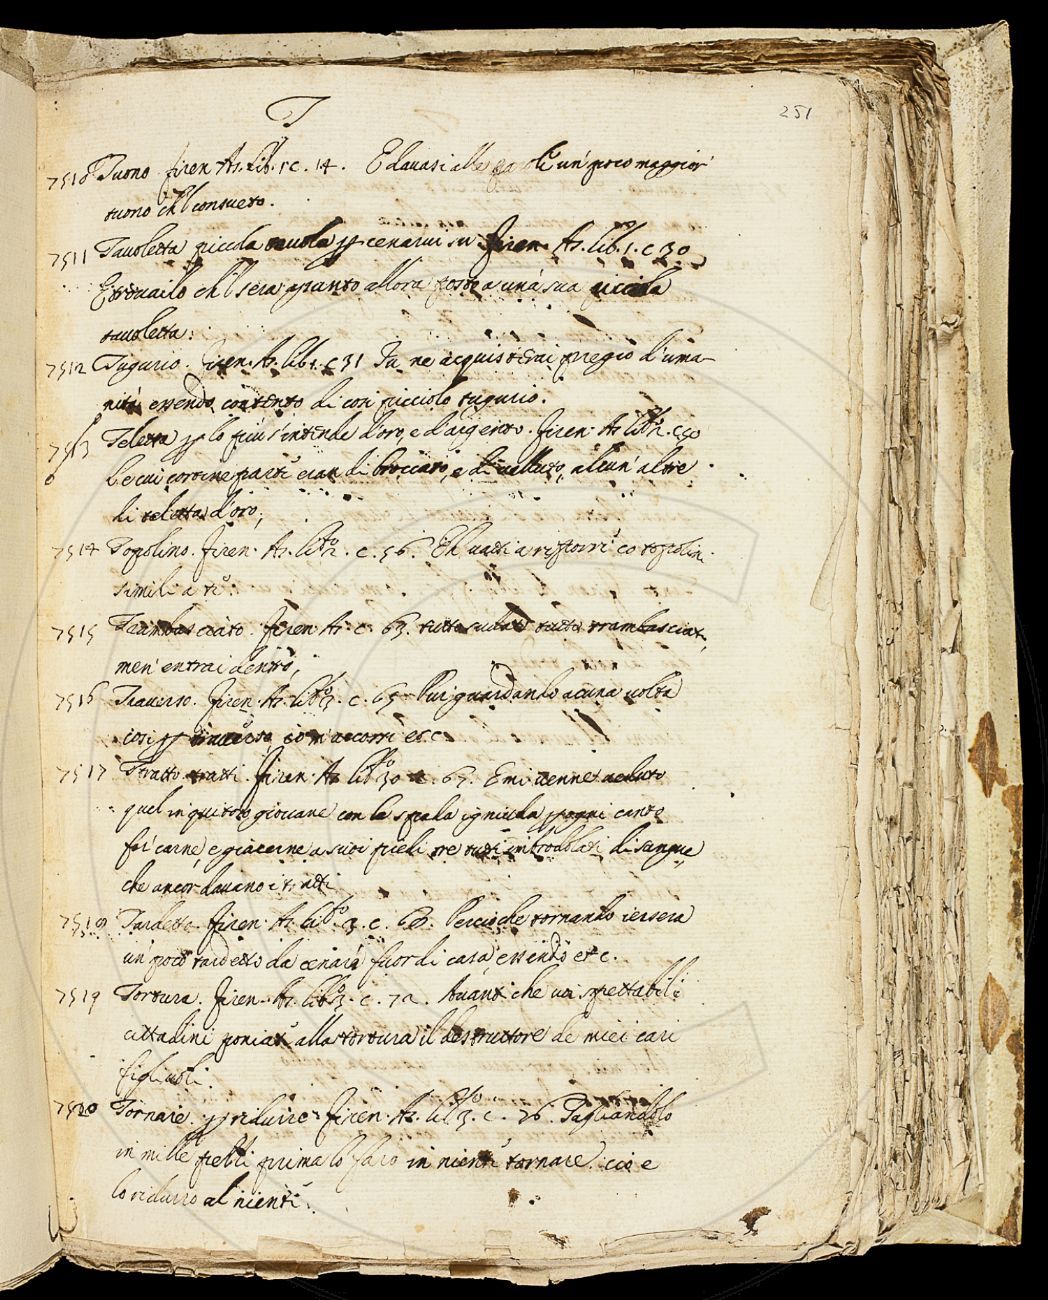 T
251
7510 Tuono. firen. As. lib. 1 c. 14. E davasi alle parole un poco maggior
tuono ch'l consueto.
7511 Tavoletta piccola tavola p cenarvi su firen. As. lib. 1. c 20
E trovailo ch'l s'era apunto allora posto a una sua piccola
tavoletta:
7512 Tugurio. firen. As. lib. 1. c 31 Tu ne acquisterai pregio d'uma-
nità essendo contento di cosi picciolo tugurio.
7513 Teletta p lo piu s'intende d'oro, e d'argento. firen. As. lib. 2. c 50
Le cui cortine parte eran di broccato, e di velluto, alcun'altre
di teletta d'oro;
7514 Topolino. firen. As. lib. 2. c. 56. Eh vatti a riporre co topolin
simili a te.
7515 Trambasciato. firen. As. c. 63. tutto sudato tutto trambasciato
men'entrai dentro;
7516 Traverso. firen. As. lib. 3. c. 65 Pur guardando alcuna volta
cosi p traverso io m'accorsi etc.
7517 Tratto. tratti. firen. As. lib. 3 c. 67. E mi venne veduto
quel iniquitoso giovane con la spada ignuda p ogni canto
far carne, e giacerne a suoi piedi tre tutti imbrodolati di sangue
che ancor davano i tratti
7518 Tardetto. firen. As. lib. 3. c. 68. Percioche tornando iersera
un poco tardetto da cena fuor di casa, essendo etc.
7519 Tortura. firen. As. lib. 3. c. 72. Avanti che voi spettabili
cittadini poniate alla tortura il destruttore de miei cari
figliuoli.
7520 Tornare. p ridurre. firen. As. lib. 3. c. 76. Tagliandolo
in mille pezzi prima lo farò in niente tornare. cioe
lo ridurrò al niente.